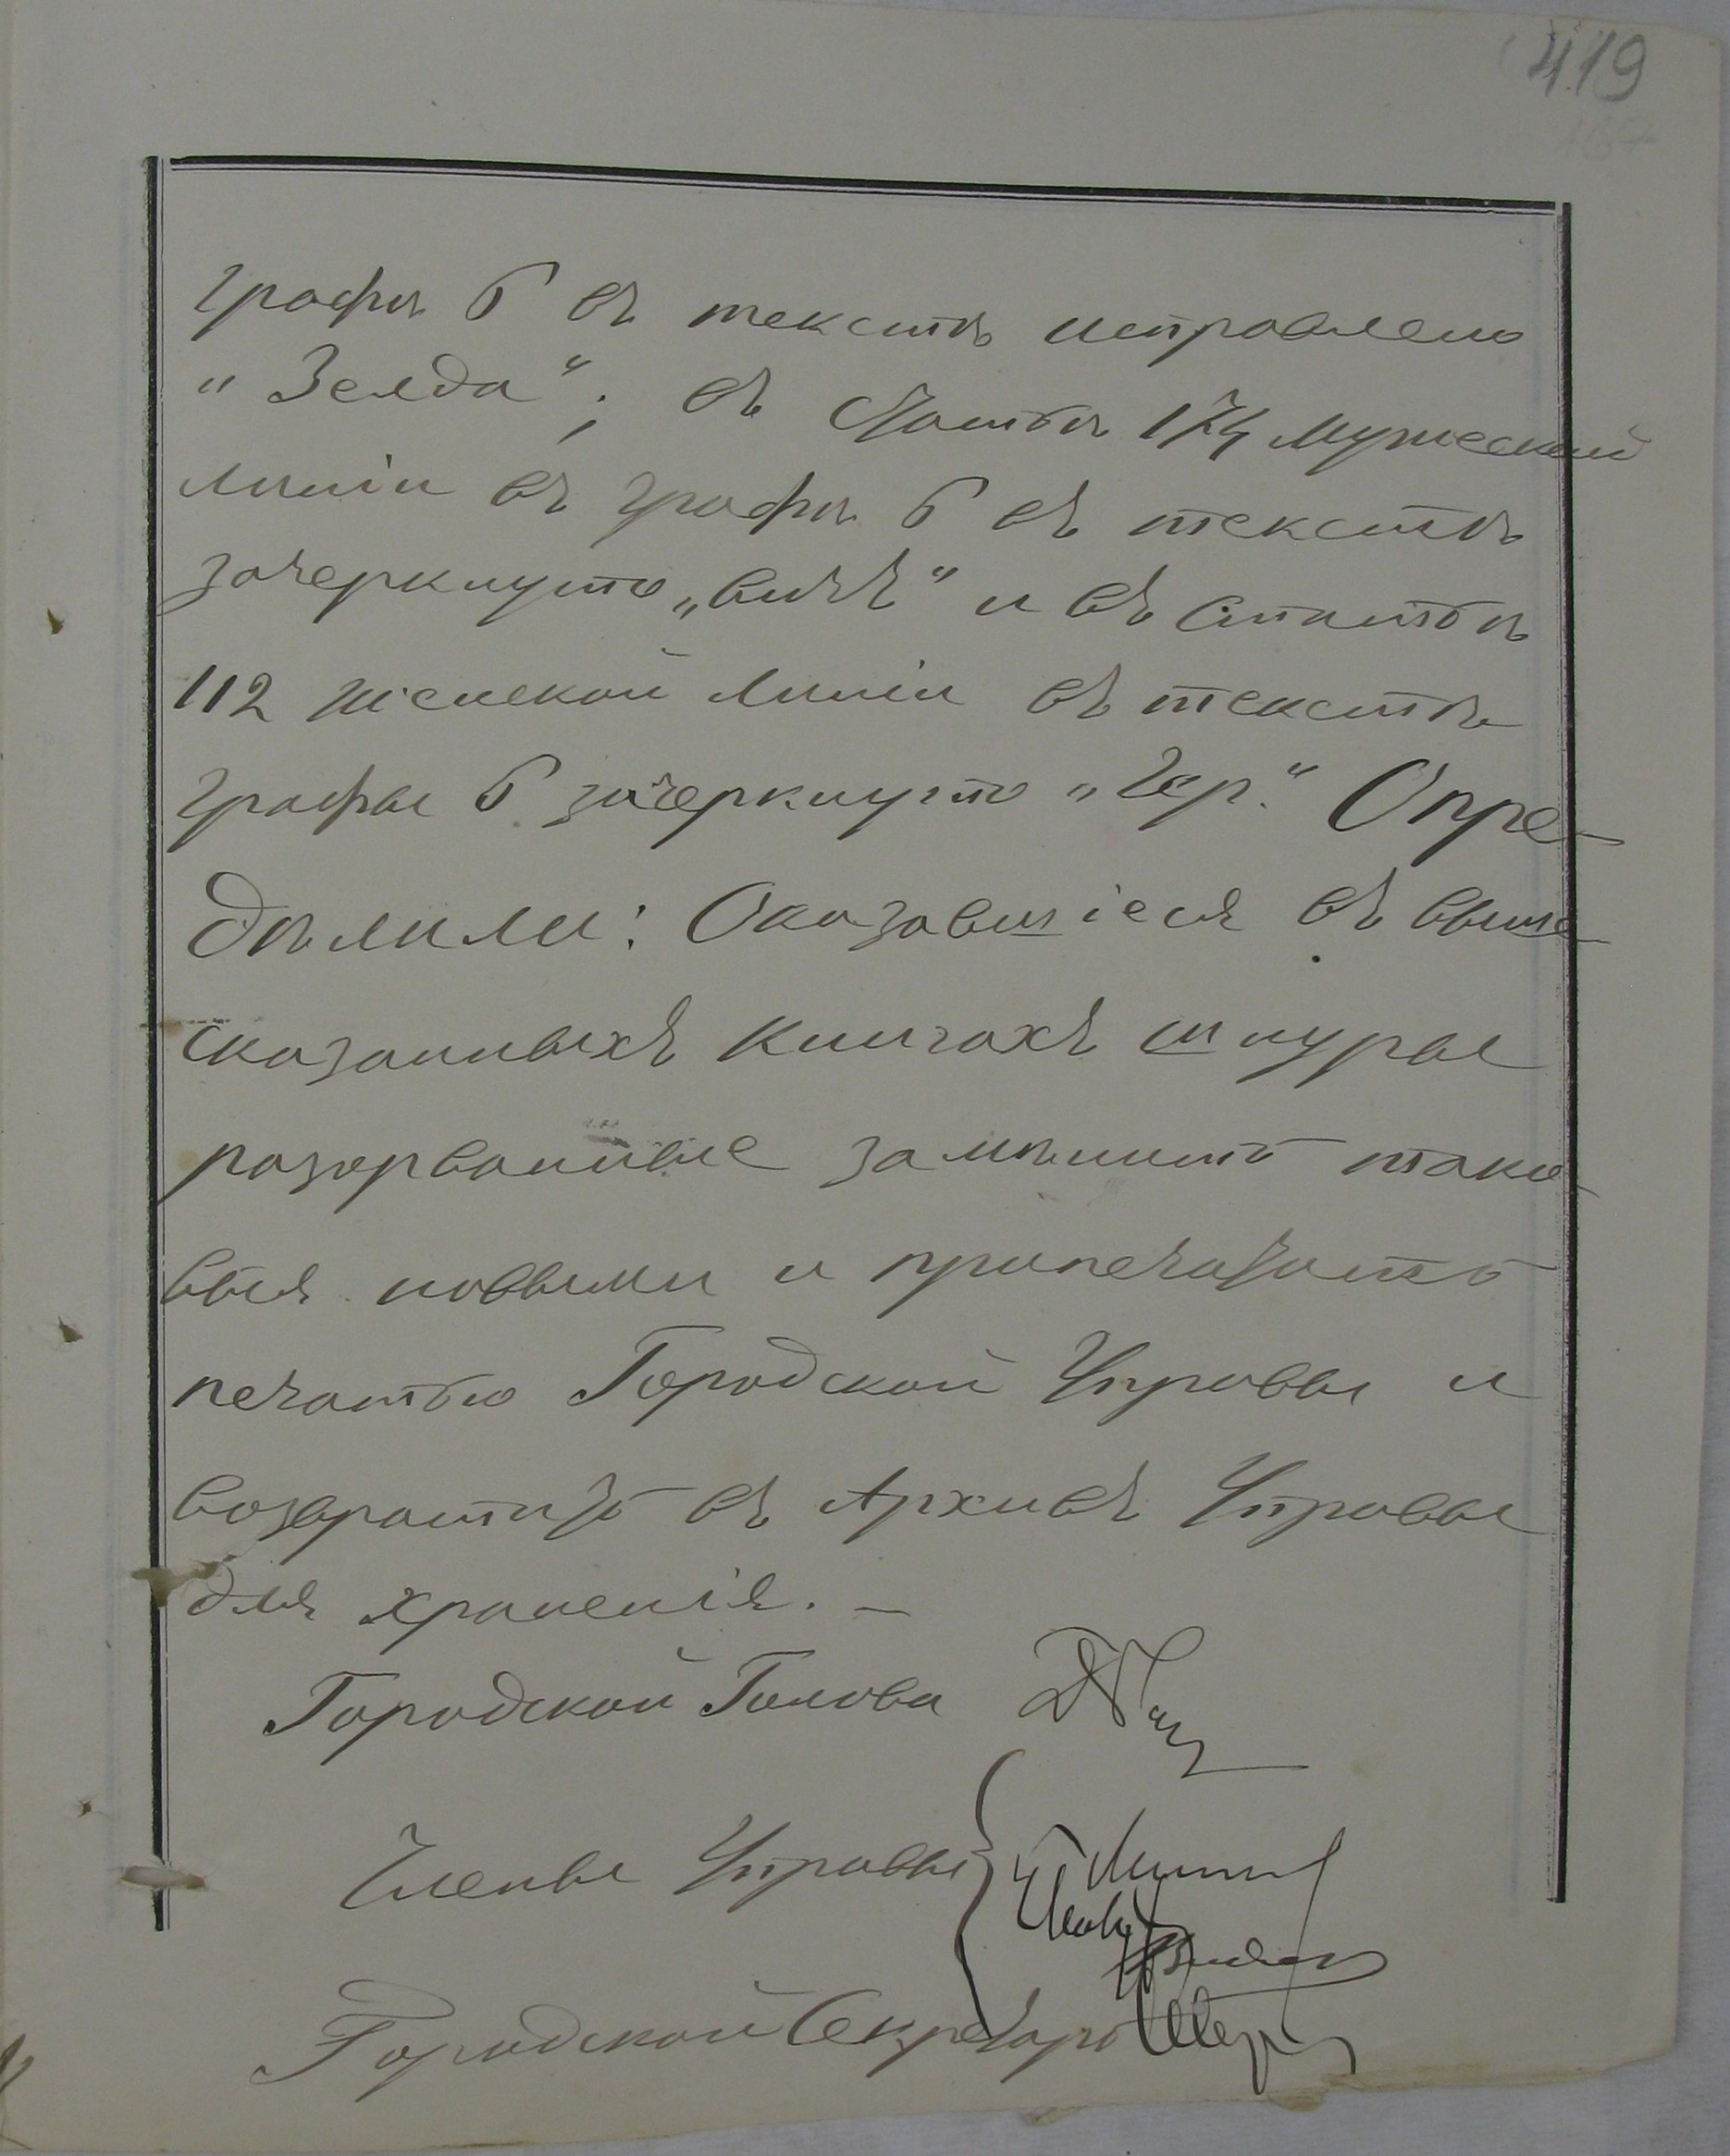 419
графѣ 6 въ текстѣ исправлено
„Зелда“; въ Статьѣ 174 мужеской
линіи въ графѣ 6 въ текстѣ
зачеркнуто „вичъ“ и въ Статьѣ
112 женской линіи въ текстѣ
графы 6 зачеркнуто „Гер.“ Опре-
дѣлили: Оказавшіеся въ выше-
сказанныхъ книгахъ шнуры
разорванные замѣнить тако-
выя новыми и припечатать
печатью Городской Управы и
возвратить въ Архивъ Управы
для храненія. –
Городской Голова
Члены Управы
Городской Секретарь